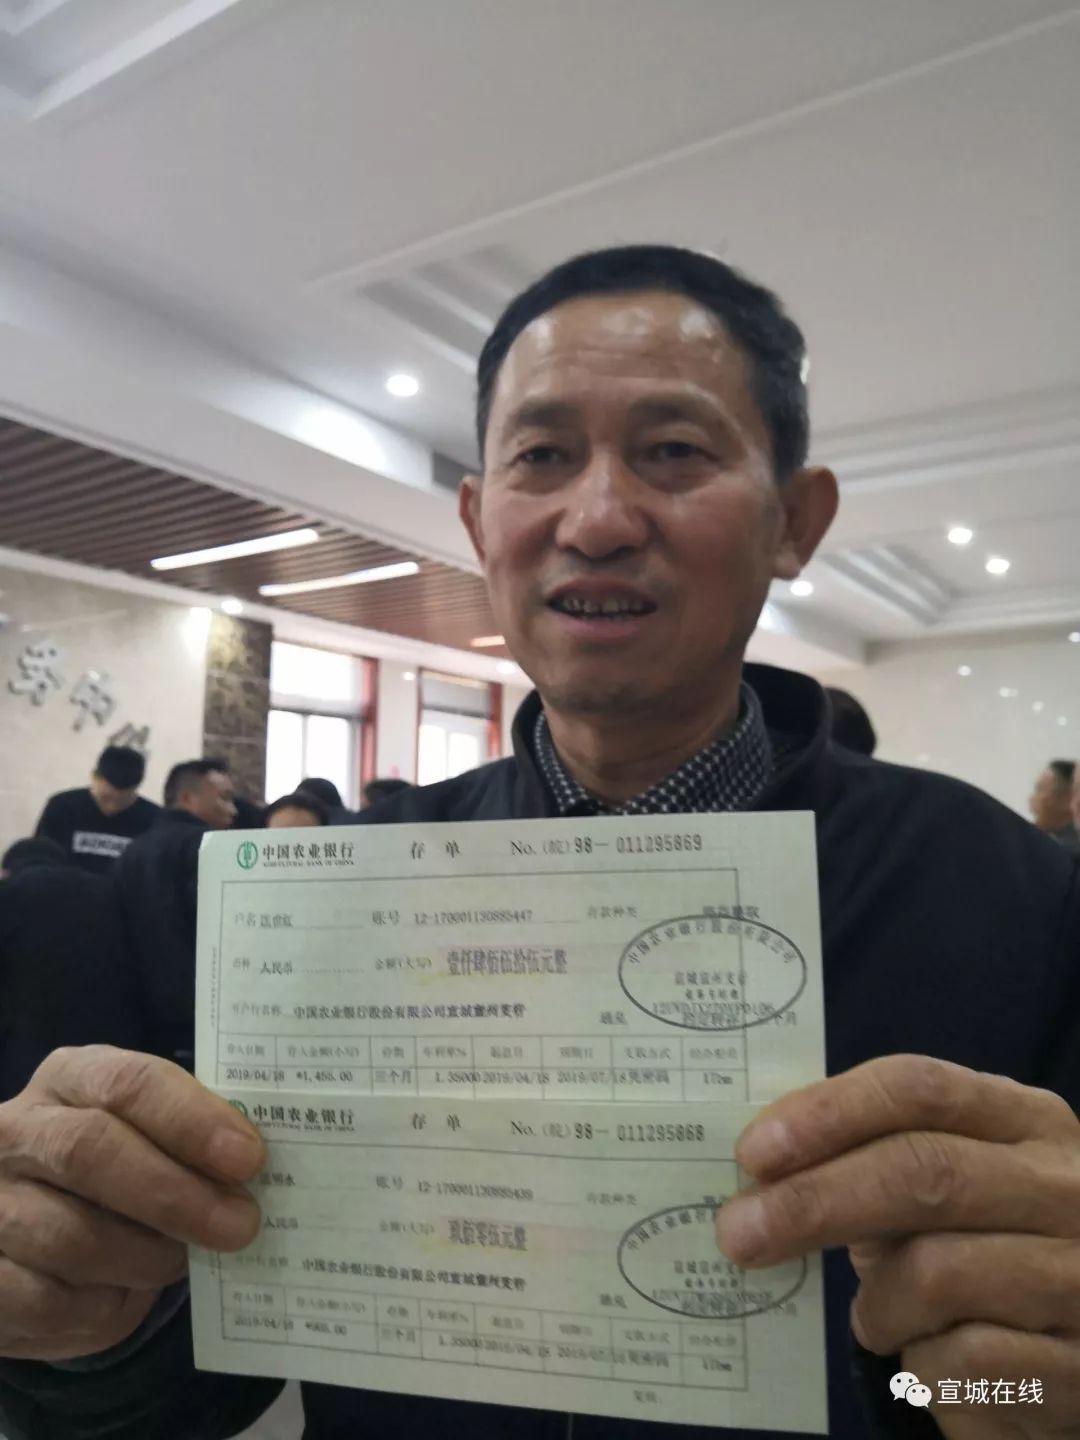 中国农业银行 存 单 No. (皖) 98— 011295869
AGRICULTURAL BANK OF CHINA
户名 账号 12-170001130885447 存款种类
币种 人民币 金额(大写) 壹仟肆佰伍拾伍元整
开户行名称 中国农业银行股份有限公司宣城宣州支行 通兑
中国农业银行股份有限公司
宣城宣州支行
存入日期 存入金额(小写) 存期 年利率% 起息日 到期日 支取方式 经办柜员
2019/04/18 *1,455.00 三个月 1.35000 2019/04/18 2019/07/18 凭密码 17bm
中国农业银行 存 单 No. (皖) 98— 011295868
AGRICULTURAL BANK OF CHINA
账号 12-170001130885439 存款种类
人民币 金额(大写) 玖佰零伍元整
开户行名称 中国农业银行股份有限公司宣城宣州支行 通兑
中国农业银行
宣城宣州支行
存入日期 存入金额(小写) 存期 年利率% 起息日 到期日 支取方式 经办柜员
2019/04/18 *905.00 三个月 1.35000 2019/04/18 2019/07/18 凭密码 17bm
宣城在线